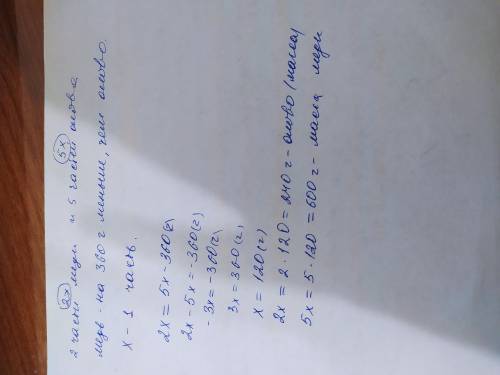 2x 5x
2 части меди и 5 частей олова
медь - на 360 г меньше, чем олово.
x - 1 часть.
2x = 5x - 360(г)
2x - 5x = -360(г)
-3x = -360(г)
3x = 360(г)
x = 120(г)
2x = 2 · 120 = 240 г - олово (масса)
5x = 5 · 120 = 600 г - масса меди